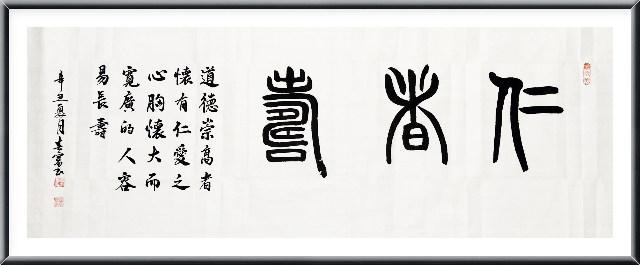 仁者壽
道德崇高者
懷有仁愛之
心胸懷大而
寬廣的人容
易長壽
辛丑夏月